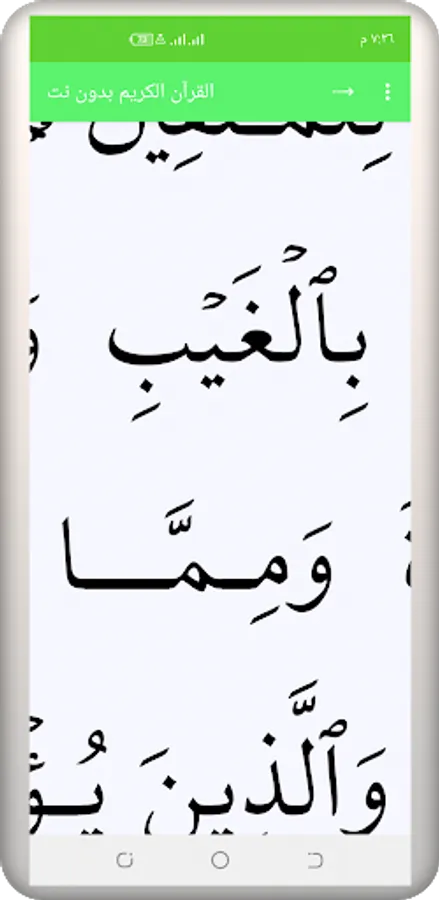 ٧:٣٦ م
73
القرآن الكريم بدون نت
بِٱلۡغَيۡبِ
وَمِمَّا
وَٱلَّذِينَ